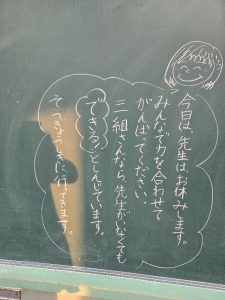 今日は、先生はお休みします。
みんなで力を合わせて
がんばってください。
三組さんなら先生がいなくても
できる!!としんじています。
そつぎょうしきに行ってきます。